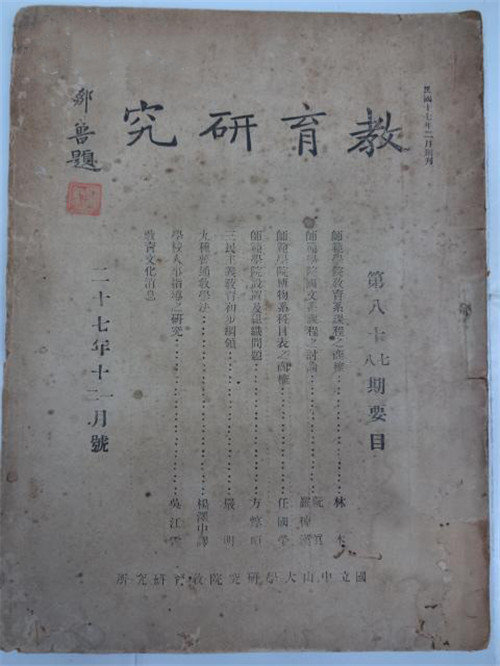 民國十七年二月創刊
教育研究
鄒魯題
第八十七八期要目
師範學院教育系課程之商榷……林本
師範學院國文系課程之討論……
師範學院博物系科目表之商榷……任國榮
師範學院設置及組織問題……方惇頤
三民主義教育初步綱領……嚴明
九種普通教學法……楊澤中譯
學校人事指導之研究……吳江霖
教育文化消息
二十七年十二月號
國立中山大學研究院教育研究所